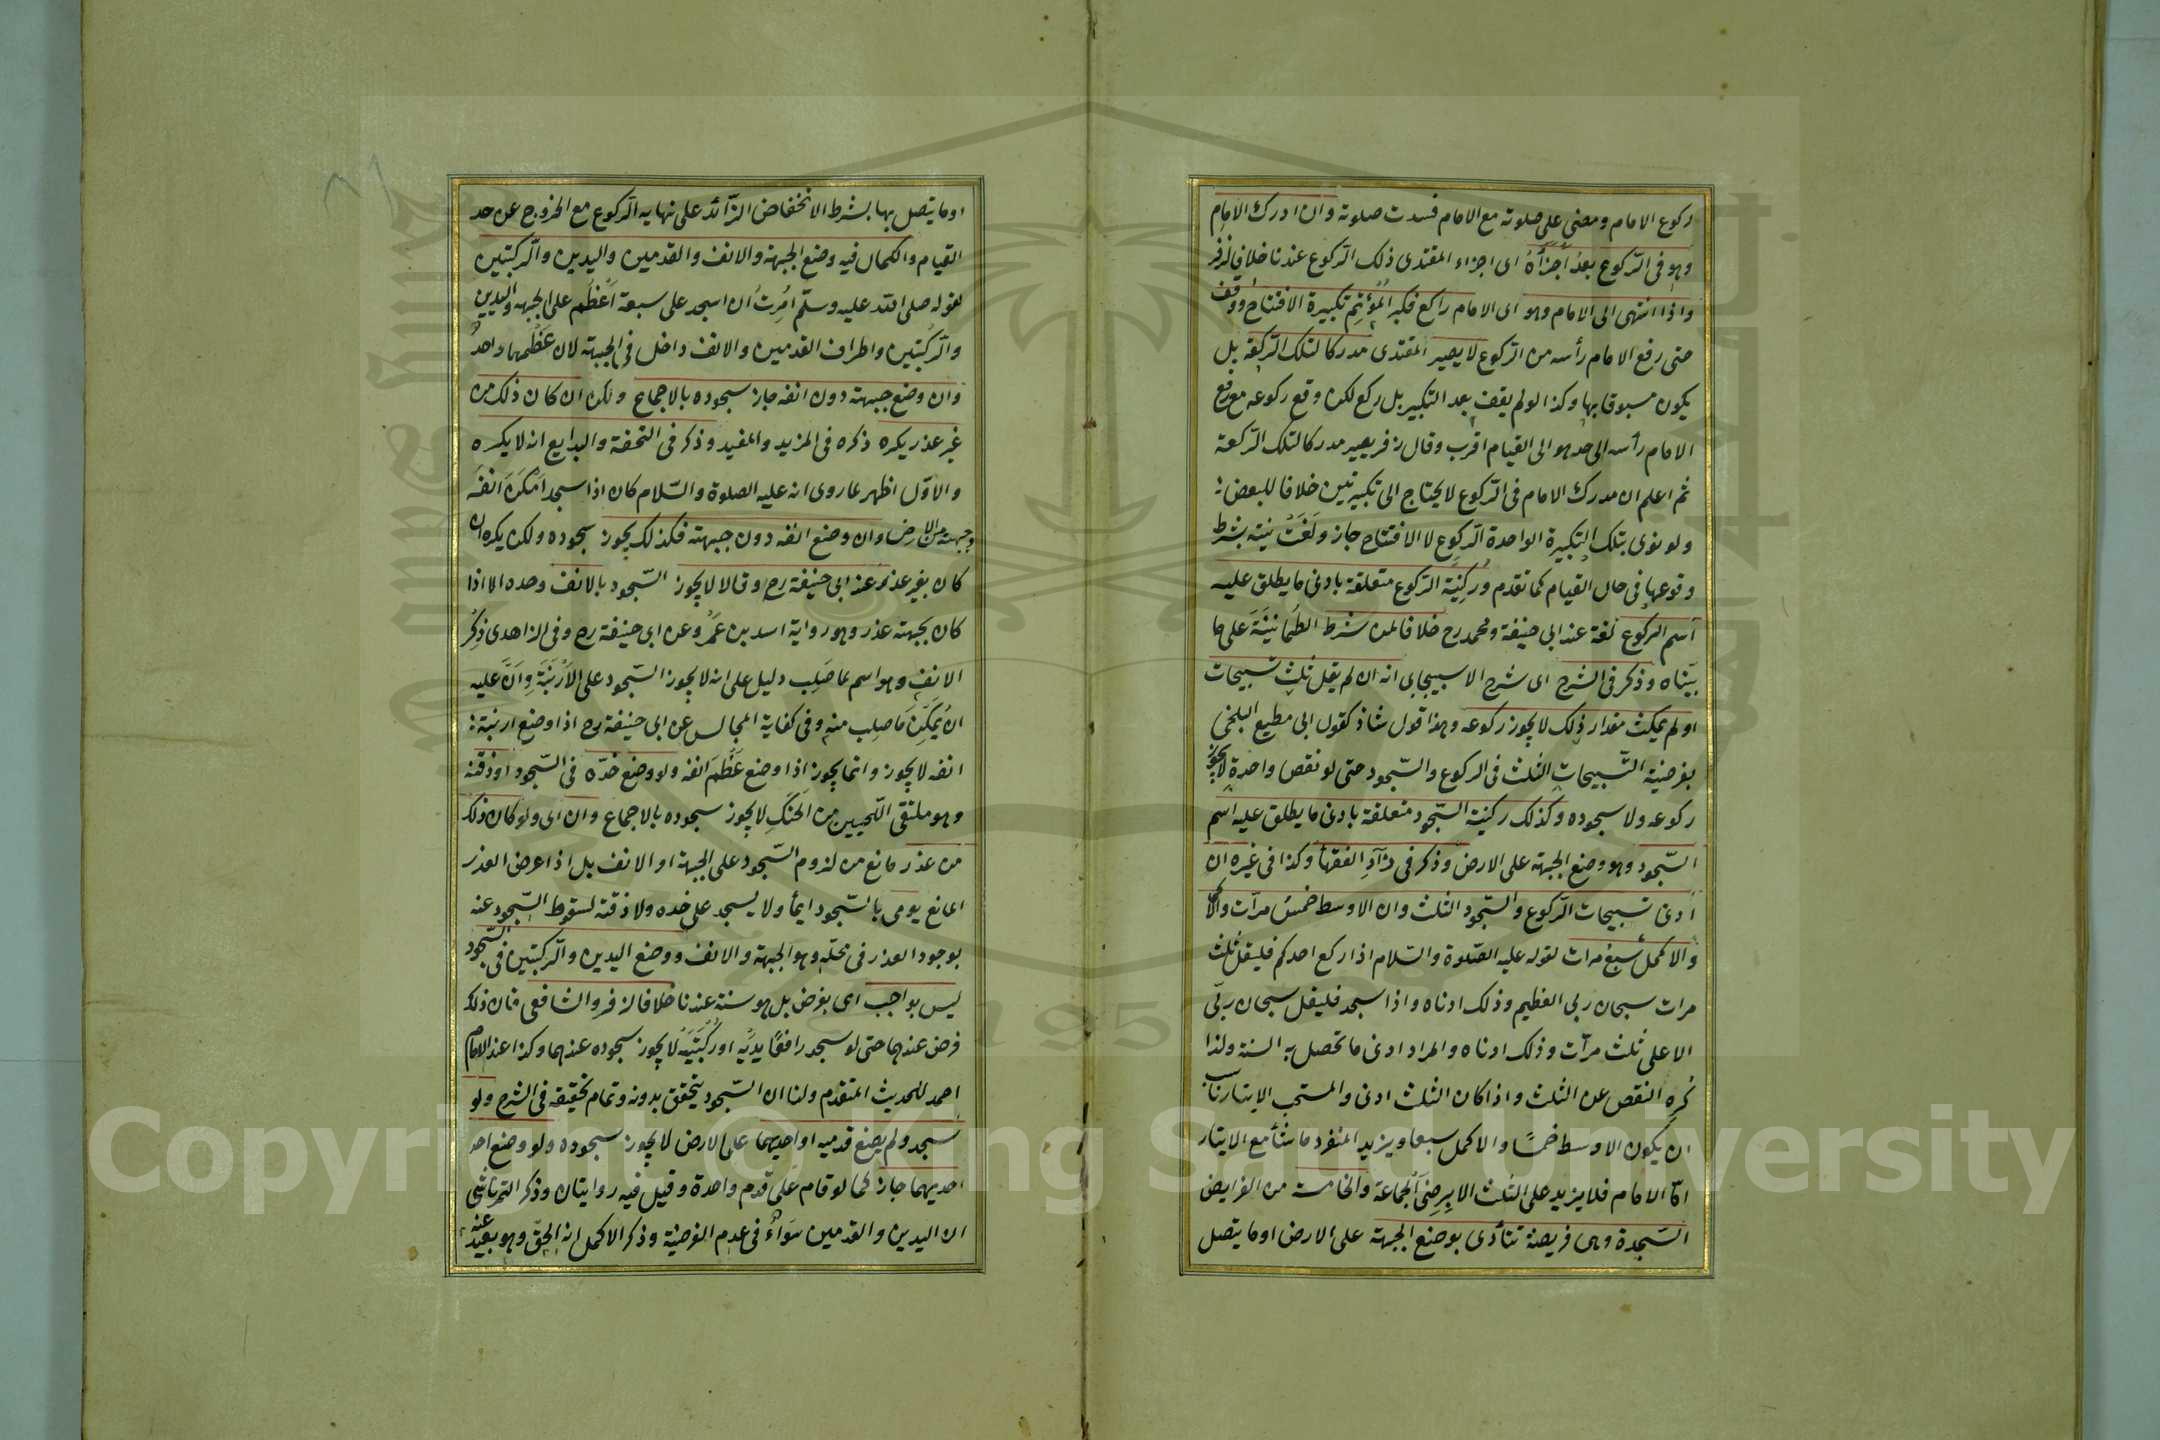 ركوع الامام ومضى على صلوته مع الامام فسدت صلوته وان ادرك الامام
وهو فى الركوع بعدُ اَجزَاَهُ اى اجزاء المقتدى ذلك الركوع عندنا خلافا لزفر
واذا انتهى الى الامام وهو اى الامام راكع فكبر المُؤتِم تكبيرة الافتتاح ووقف
حتى رفع الامام رأسه من الركوع لا يصير المقتدى مدركا لتلك الركعة بل
يكون مسبوقا بها وكذا لو لم يقف بعد التكبير بل ركع لكن وقع ركوعه مع رفع
الامام رأسه الى حد هو الى القيام اقرب وقال زفر يصير مدركا لتلك الركعة
ثم اعلم ان مدرك الامام فى الركوع لا يحتاج الى تكبيرتين خلافا للبعض
ولو نوى بتلك التكبيرة الواحدة الركوع لا الافتتاح جاز ولَغَتْ نيته بشرط
وقوعها فى حال القيام كما تقدم ورُكنِيّة الركوع متعلقة بادنى ما يطلق عليه
اسم الركوع لغة عند ابى حنيفة ومحمد رح خلافا لمن شرط الطُمانينَة على ما
بيّناه وذكر فى الشرح اى شرح الاسبيجابى انه ان لم يقل ثلث تسبيحات
او لم يمكث مقدار ذلك لا يجوز ركوعه وهذا قول شاذ كقول ابى مطيع البلخى
بفرضية التّسبيحات الثلث فى الركوع والسّجود حتى لو نقص واحدة لا يجوز
ركوعه ولا سجوده وكذلك ركنية السّجود متعلقة بادنى ما يطلق عليه اسم
السّجود وهو وضع الجبهة على الارض وذكر فى زاد الفقهاء وكذا فى غيره ان
ادنى تسبيحات الركوع والسّجود الثلث وان الاوسط خمسُ مرّات
والاكمل سبع مرات لقوله عليه الصّلوة والسّلام اذا ركع احدكم فليقل ثلث
مرات سبحان ربى العظيم وذلك ادناه واذا سجد فليقل سبحان ربّى
الاعلى ثلث مرّات وذلك ادناه والمراد ادنى ما تحصل به السنة ولذا
كُرِه النقص عن الثلث واذا كان الثلث ادنى والمستحب الايتار ناسب
ان يكون الاوسط خمسًا والاكمل سبعا ويزيد المنفرد ما شأ مع الايتار
امّا الامام فلا يزيد على الثلث الا برِضَى الجماعة والخامسة من الفرايض
السّجدة وهى فريضة تتأدى بوضع الجبهة على الارض او ما يتصل
او ما يتصل بها بشرط الانخفاض الزّائد على نهاية الركوع مع الخروج عن حد
القيام والكمال فيه وضع الجبهة والانف والقدمين واليدين والرّكبتين
لقوله صلى الله عليه وسلّم امُرِتُ ان اسجد على سبعة اَعْظُم على الجبهة واليدين
والرّكبتين واطراف القدمين والانف داخل فى الجبهة لان عَظْمها واحدٌ
وان وضع جبهته دون انفه جاز سجوده بالاجماع ولكن ان كان ذلك من
غير عذر يكره ذكره فى المزيد والمفيد وذكر فى التحفة والبدايع انه لا يكره
والاوّل اظهر لما روى انه عليه الصلوة والسّلام كان اذا سجد اَمْكَنَ انفَه
وجبهته من الارض وان وضع انفه دون جبهته فكذلك يجوز سجوده ولكن يكره ان
كان بغير عذر عند ابى حنيفة رح وقالا لا يجوز السّجود بالانف وحده الا اذا
كان بجبهته عذر وهو رواية اسد بن عَمْرو عن ابى حنيفة رح وفى الزاهدى ذِكْرُ
الانف وهو اسم لما صَلِب دليل على انه لا يجوز السّجود على الاَرْنَبَةِ وَانّ عليه
ان يُمَكِّنَ مَا صلِب منه وفى كفاية المجالس عن ابى حنيفة رح اذا وضع ارنبة
انفه لا يجوز وانما يجوز اذا وضع عَظْمَ انفه ولو وضع خدّه فى السّجود او ذقنه
وهو ملتقى اللّحيين من الحَنَكِ لا يجوز سجوده بالاجماع وان اى ولو كان ذلك
من عذر مانع من لزوم السّجود على الجبهة او الانف بل اذا عرض العذر
المانع يومى بالسّجود ايمأ ولا يسجد على خده ولا ذقنه لسقوط السّجود عنه
بوجود العذر فى محلّه وهو الجبهة والانف ووضع اليدين والرّكبتين فى السّجود
ليس بواجب اى بفرض بل هو سنة عندنا خلافا لزفر والشافعى فان ذلك
فرض عندهما حتى لو سجد رافعًا يديْه او رُكبتَيْه لا يجوز سجوده عندهما وكذا عند الامام
احمد للحديث المتقدّم ولنا ان السّجود يتحقق بدونه وتمام تحقيقه فى الشرح ولو
سجد ولم يضع قدميه او احديهما على الارض لا يجوز سجوده ولو وضع احد
احديهما جاز كما لو قام على قدم واحدة وقيل فيه روايتان وذكر التمرتاشى
ان اليدين والقدمين سَواءٌ فى عدم الفرضية وذكر الاكمل انه الحقّ وهو بعيد عنه